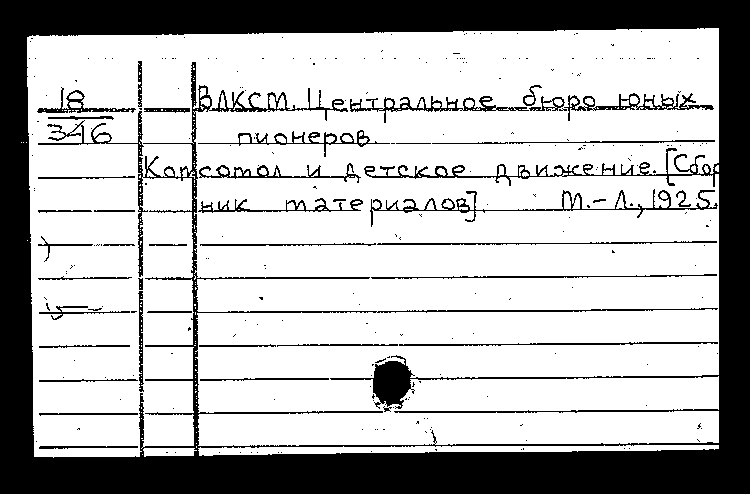 18
346
ВЛКСМ. Центральное бюро юных
пионеров.
Комсомол и детское движение. [Сбор
ник материалов]. М.-Л., 1925.